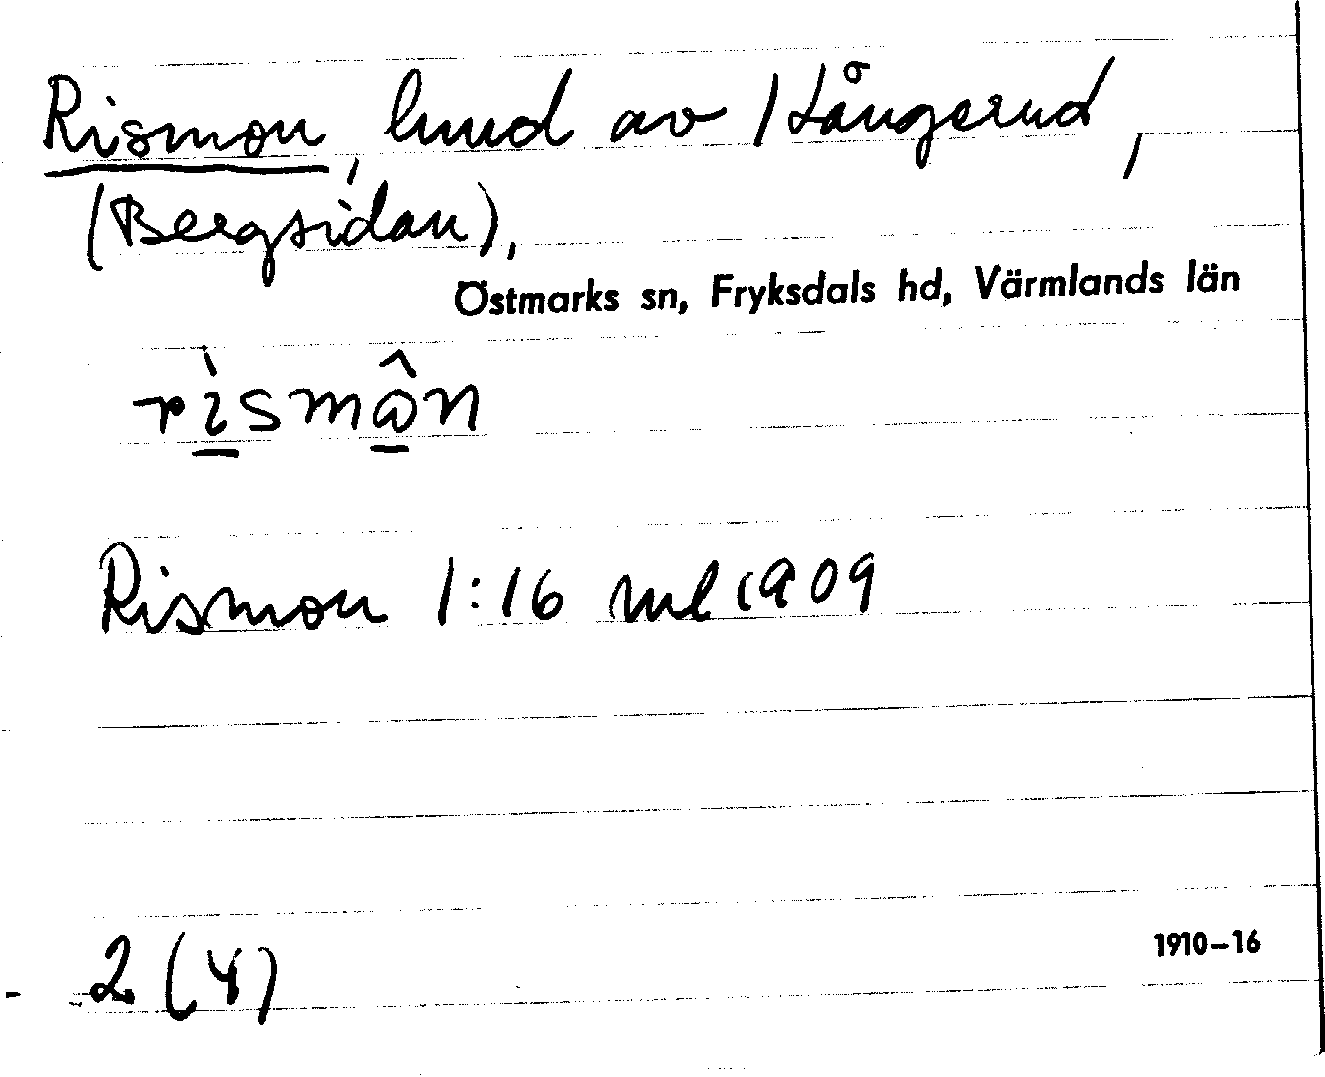 Rismon, hmd av 1 Långerud,
(Bergsidan),
Östmarks sn, Fryksdals hd, Värmlands län
rìsmôn
Rismon 1:16 ml 1909
1910–16
2 (4)